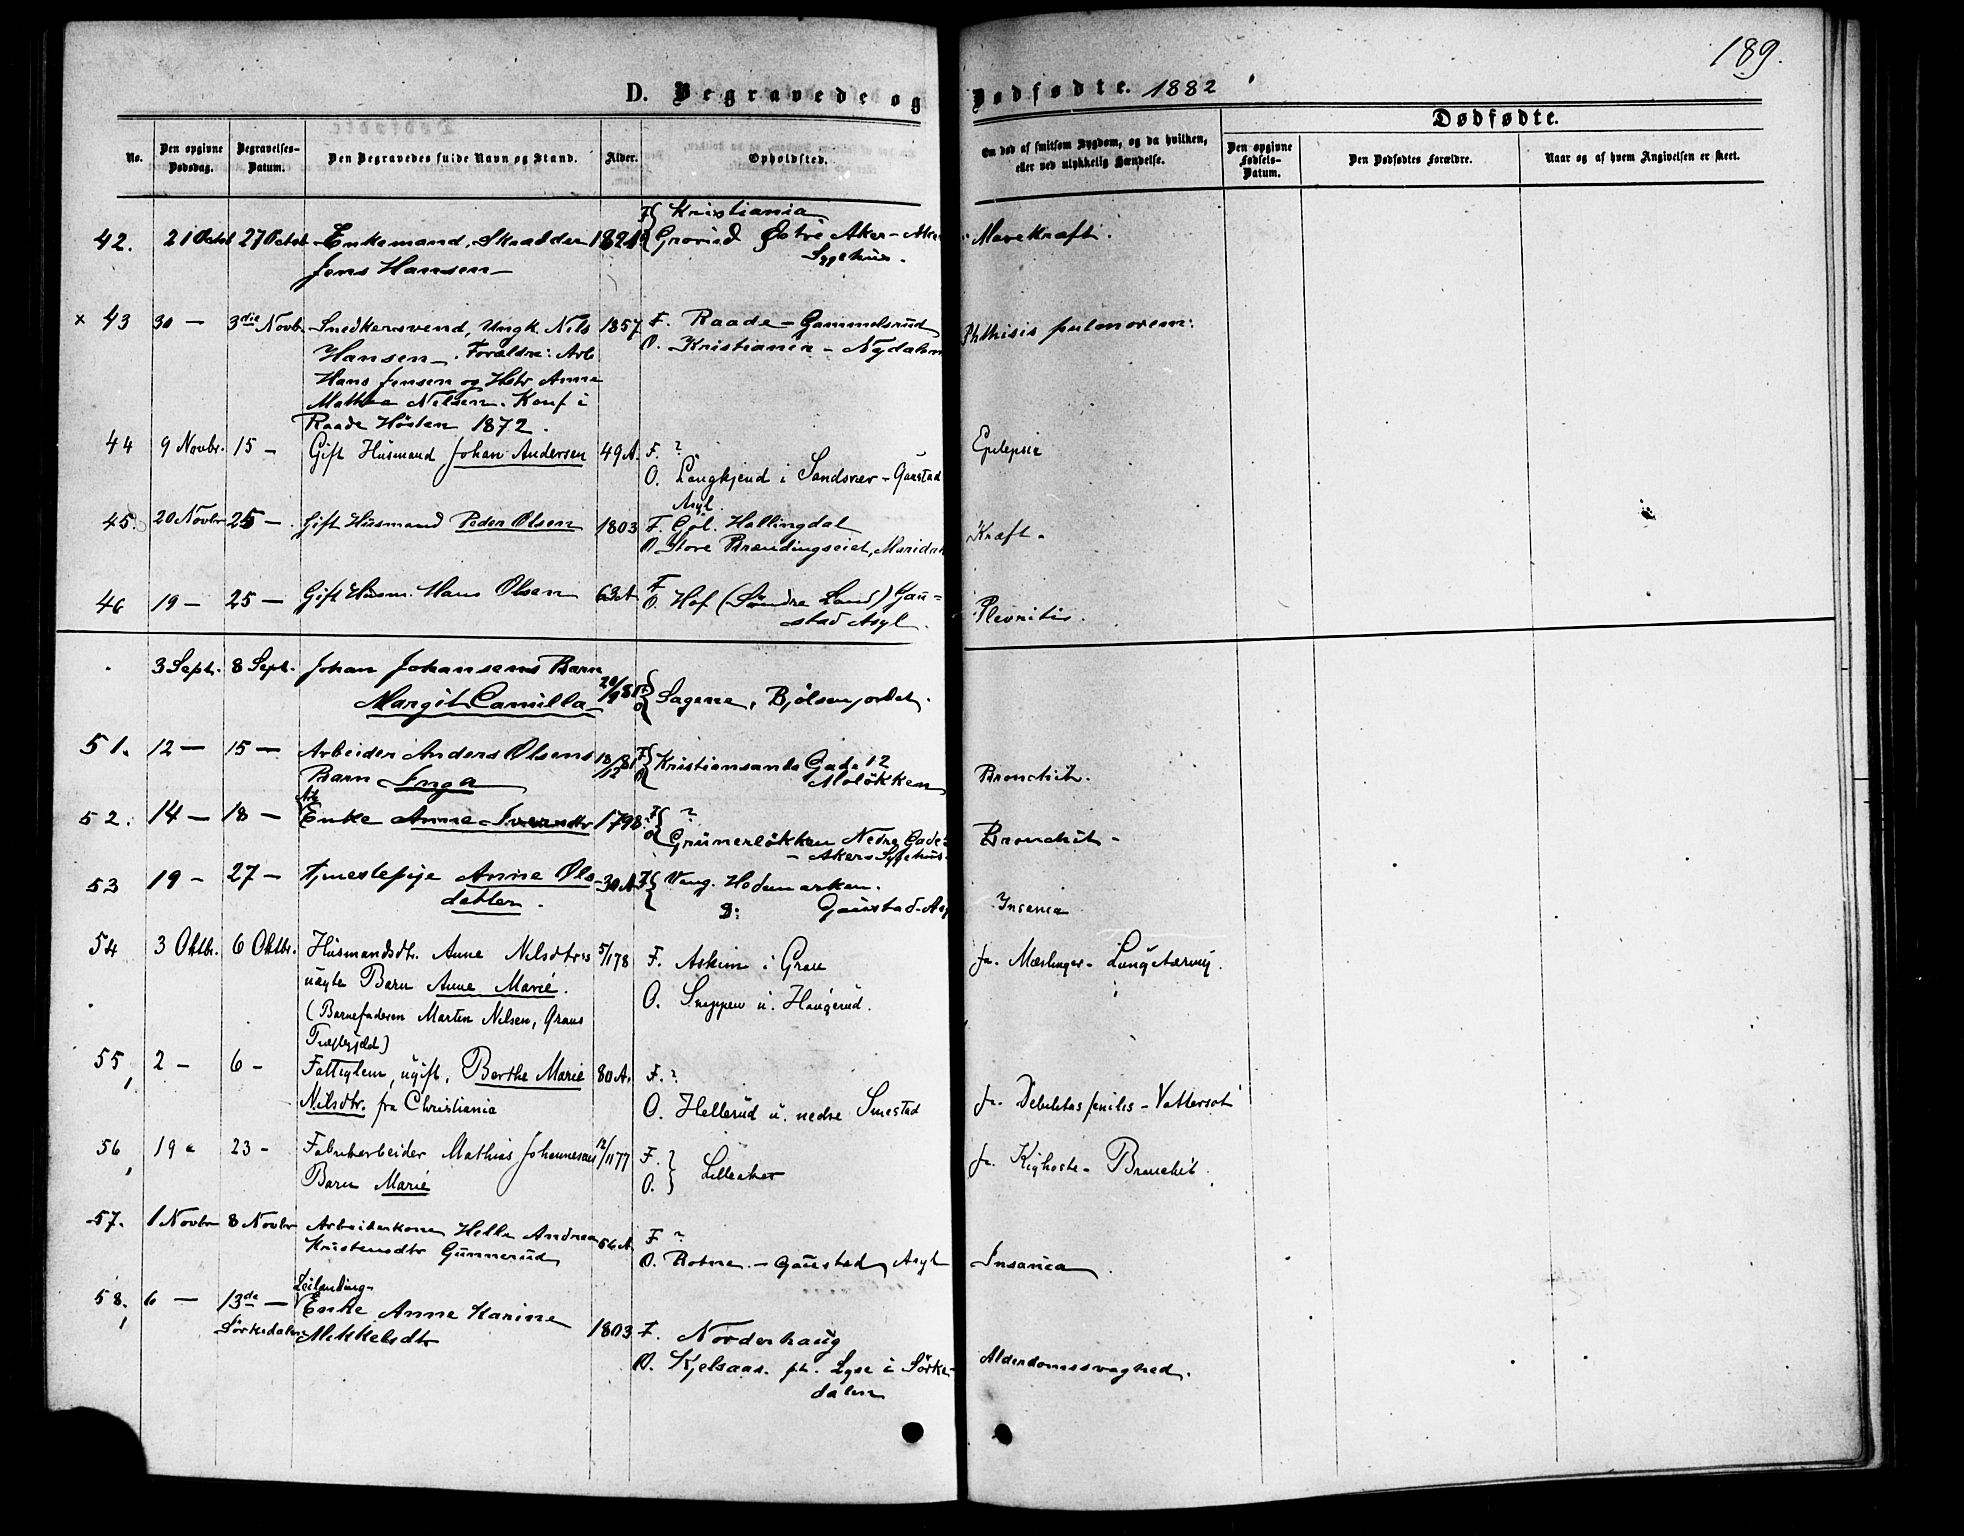 189.
D. Begravede og Dødfødte. 1882
Dødfødte.
No.
Den opgivne Dødsdag.
Begravelses-Datum.
Den Begravedes fulde Navn og Stand.
Alder.
Opholdssted.
Om død af smitsom Sygdom, og da hvilken, eller ved ulykkelig Hændelse.
Den opgivne Fødsels-Datum.
Den Dødfødtes Forældre.
Naar og af hvem Angivelsen er skeet.
42. 21 Octbr 27 Octbr Enkemand, Skrædder F Kristiania
Jens Hansen Grorud Østre Aker - Aker Sygehus. Mavekræft.
x 43 30 — 3die Novb. Snedkersvend, Ungk. Nils 1857 F. Raade - Gammelsrud Phthisis pulmorem:
Hansen. Forældre: Arb O. Kristiania - Nydalen
Hans Jensen og Hstr Anne
Mathea Nelsen. Konf i
Raade Høsten 1872.
44 9 Novbr. 15 — Gift Husmand Johan Andersen 49 A. F. ? Epilepsie
O. Langkjend i Sandsvær - Gaustad
Asyl.
45. 20 Novbr 25 — Gift Husmand Peder Olsen 1803 F. Gol. Hallingdal Kræft.
O Store Brændingseiet, Maridal
46 19 — 25 — Gift Husm. Hans Olsen 63 A F.
O. Hof (Søndre Land) Gau=
stad Asyl. Plevritis.
3 Sept. 8 Sept. Johan Johansens Barn
Margit Camilla 20/9 81 F O Sagene, Bjølsenjordet.
51. 12 — 15 — Arbeider Anders Olsens 81 F Kristiansands Gade 12
Barn Inga O Moløkken Bronchit.
52. 14 — 18 — Arb Enke Anne Iversdtr 1798. F ?
O Grünerløkken Nedre Gade
- Akers Sygehus Bronchit -
53 19 — 27 — Tjenestepige Anne Ols- 30 A F Vang. Hedemarken.
datter. Gaustad-Asyl Insania
54 3 Oktbr. 6 Oktbr. Husmandsdtr. Anne Nilsdtrs 5/1 78 F. Askim i Gran Ja. Mæslinger - Lungetæring.
uægte Barn Anne Marie. O. Sneppen u. Haugerud.
(Barnefaderen Martin Nilsen, Grans
55, 2 — 6 — Fattiglem, ugift, Berthe Marie 80 A. F. ?
Nilsdtr. fra Christiania O. Hellerud u. nedre Smestad Ja. Debilitas senilis - Vattersot
56, 19 " 23 — Fabrikarbeider Mathias Johannesens 12/11 77 F.
Barn Marie O. Lilleaker Ja. Kighoste - Bronchit.
57. 1 Novbr 8 Novbr Arbeiderkone Helle Andrea 56 A F ?
Kristensdtr Gunnerud O. Rotnes - Gaustad Asyl Insania
58, 6 — 13de — Leilænding-
Enke Anne Karine
Sørkedalen Mikkelsdtr 1803 F. Norderhaug
O. Kjelsaas. pl. Lyse i Sørke-
dalen Alderdomssvaghed.